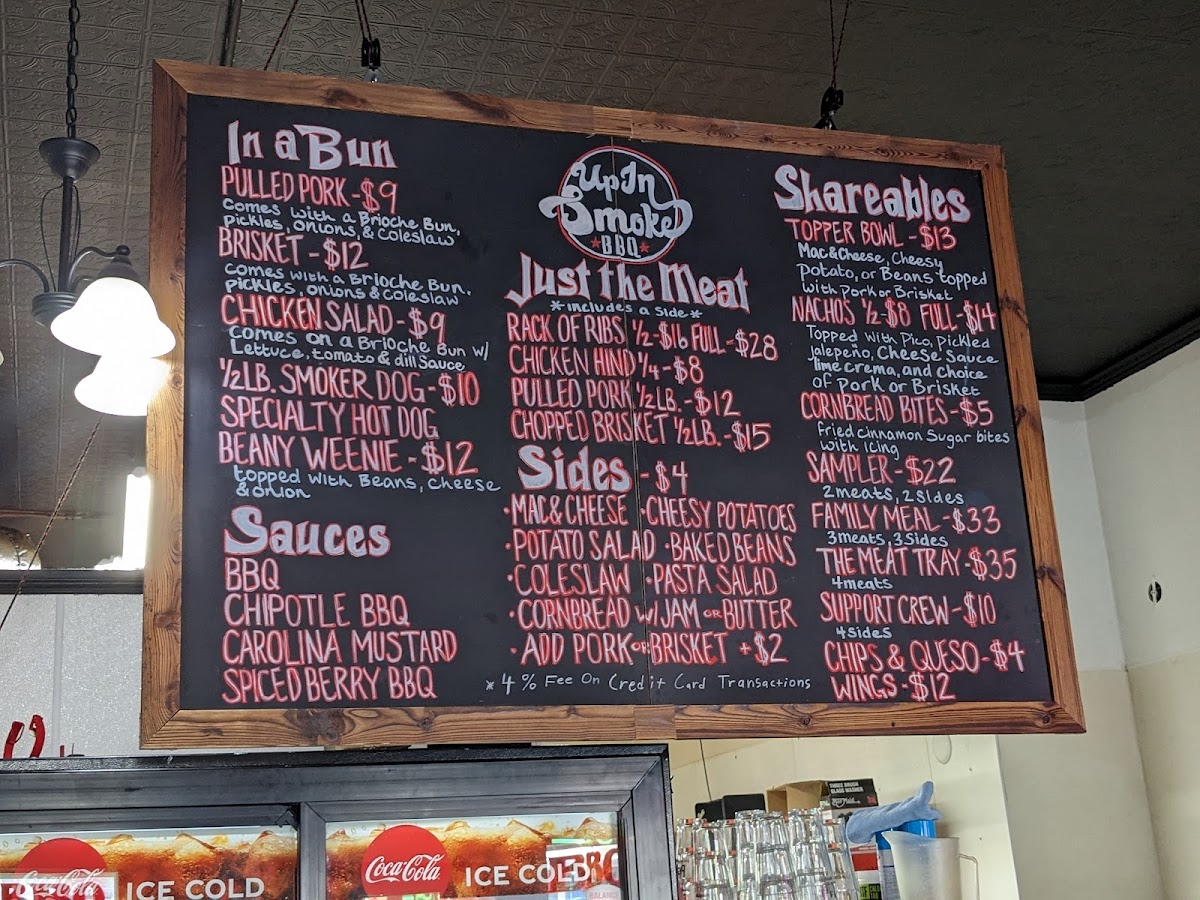 In a Bun
PULLED PORK - $9
comes with a Brioche Bun,
pickles, onions, & Coleslaw
BRISKET - $12
comes with a Brioche Bun.
pickles, onions & Coleslaw
CHICKEN SALAD - $9
comes on a Brioche Bun w/
Lettuce, tomato & dill Sauce
1/2 LB. SMOKER DOG - $10
SPECIALTY HOT DOG
BEANY WEENIE - $12
topped with Beans, cheese
& onion
Sauces
BBQ
CHIPOTLE BBQ
CAROLINA MUSTARD
SPICED BERRY BBQ
Up In
Smoke
★BBQ★
Just the Meat
*includes a side*
RACK OF RIBS 1/2 - $16 FULL - $28
CHICKEN HIND 1/4 - $8
PULLED PORK 1/2 LB. - $12
CHOPPED BRISKET 1/2 LB. - $15
Sides - $4
·MAC & CHEESE ·CHEESY POTATOES
·POTATO SALAD ·BAKED BEANS
·COLESLAW ·PASTA SALAD
·CORNBREAD W/JAM OR BUTTER
·ADD PORK OR BRISKET +$2
*4% Fee On Credit Card Transactions
Shareables
TOPPER BOWL - $13
Mac & Cheese, Cheesy
Potato, or Beans topped
with Pork or Brisket
NACHOS 1/2 - $8 FULL - $14
Topped with Pico, Pickled
Jalepeño, Cheese Sauce
lime crema, and choice
of pork or Brisket
CORNBREAD BITES - $5
fried cinnamon Sugar bites
with icing
SAMPLER - $22
2 meats, 2 sides
FAMILY MEAL - $33
3 meats, 3 sides
THE MEAT TRAY - $35
4 meats
SUPPORT CREW - $10
4 sides
CHIPS & QUESO - $4
WINGS - $12
Coca-Cola
ICE COLD
Coca-Cola
ICE COLD
THREE BRUSH
GLASS WASHER